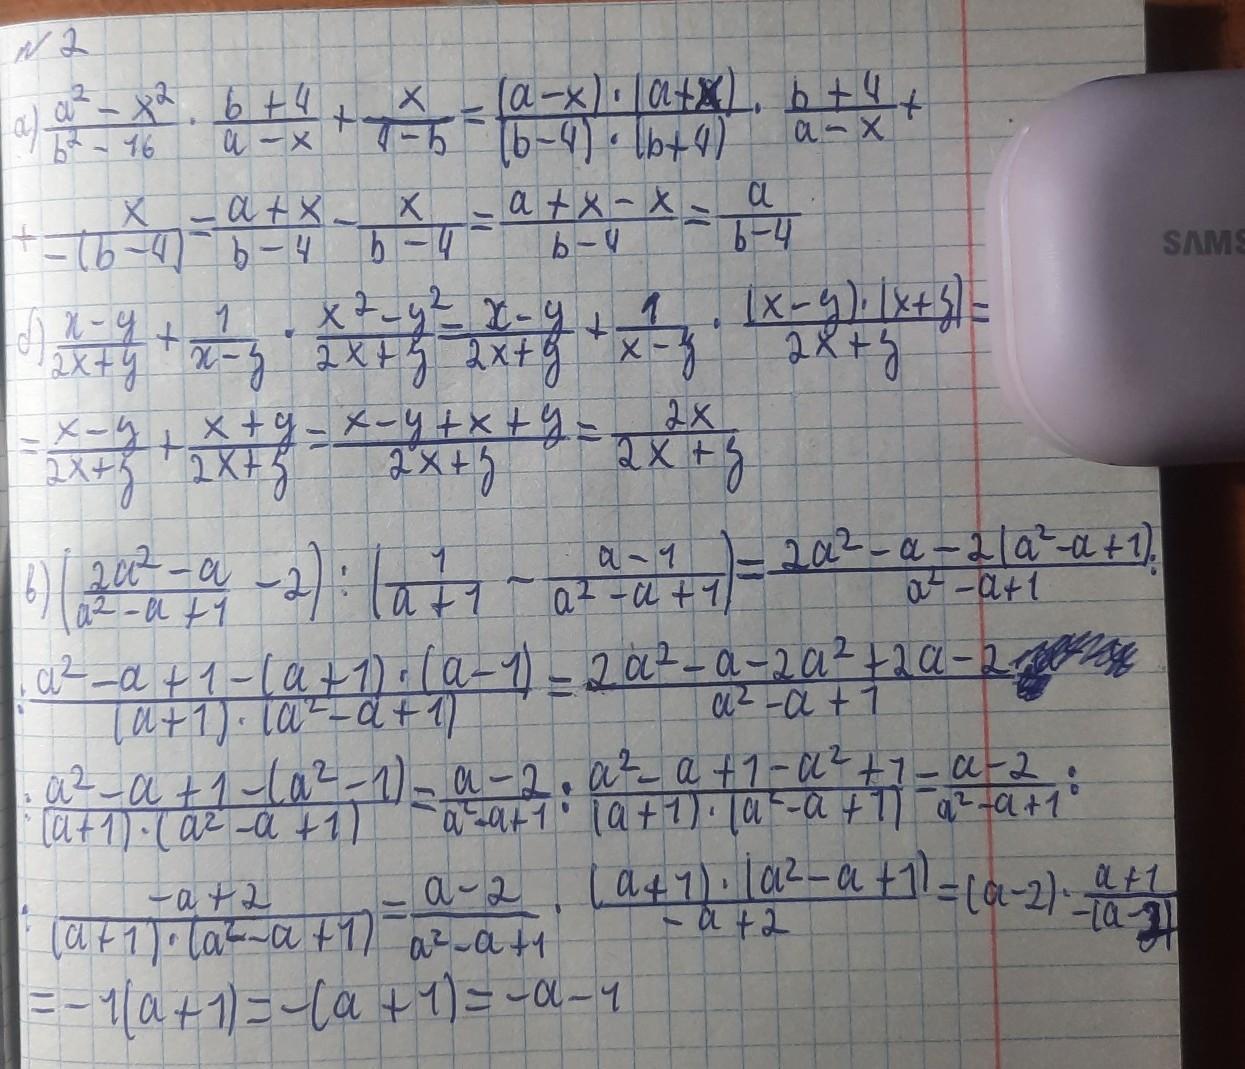 № 2
а) (a² - x²)/(b² - 16) · (b + 4)/(a - x) + x/(4 - b) = ((a - x) · (a + x))/((b - 4) · (b + 4)) · (b + 4)/(a - x) +
+ x/(-(b - 4)) = (a + x)/(b - 4) - x/(b - 4) = (a + x - x)/(b - 4) = a/(b - 4)
б) (x - y)/(2x + y) + 1/(x - y) · (x² - y²)/(2x + y) = (x - y)/(2x + y) + 1/(x - y) · ((x - y) · (x + y))/(2x + y) =
= (x - y)/(2x + y) + (x + y)/(2x + y) = (x - y + x + y)/(2x + y) = 2x/(2x + y)
в) ((2a² - a)/(a² - a + 1) - 2) : (1/(a + 1) - (a - 1)/(a² - a + 1)) = (2a² - a - 2(a² - a + 1))/(a² - a + 1) :
: (a² - a + 1 - (a + 1) · (a - 1))/((a + 1) · (a² - a + 1)) = (2a² - a - 2a² + 2a - 2)/(a² - a + 1)
: (a² - a + 1 - (a² - 1))/((a + 1) · (a² - a + 1)) = (a - 2)/(a² - a + 1) : (a² - a + 1 - a² + 1)/((a + 1) · (a² - a + 1)) = (a - 2)/(a² - a + 1) :
: (-a + 2)/((a + 1) · (a² - a + 1)) = (a - 2)/(a² - a + 1) · ((a + 1) · (a² - a + 1))/(-a + 2) = (a - 2) · (a + 1)/(-(a - 2))
= -1(a + 1) = -(a + 1) = -a - 1